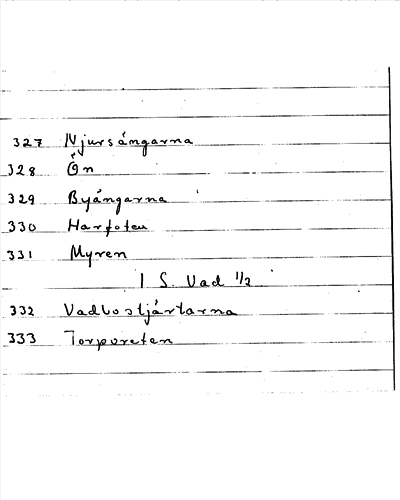 327 Njursängarna
328 Ön
329 Byängarna
330 Harfoten
331 Myren
1 S. Vad 1/2
332 Vadbostjärtarna
333 Torpvreten